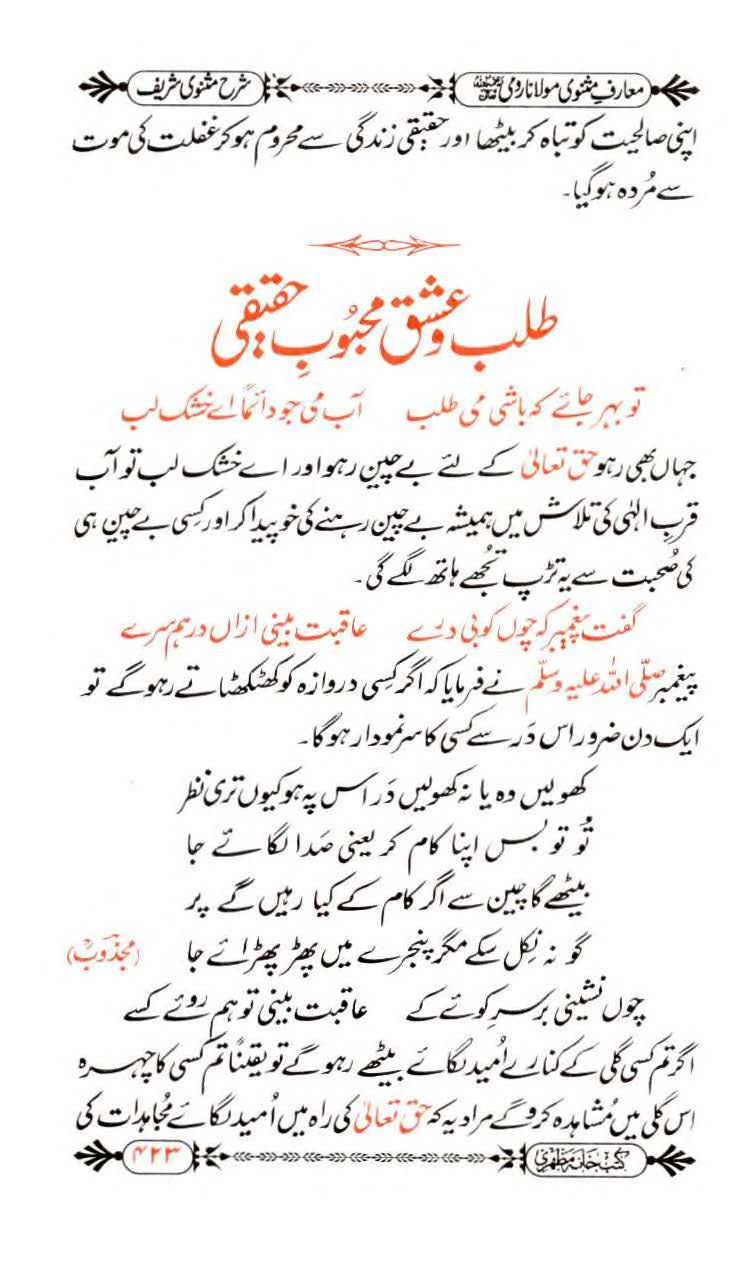 معارفِ مثنوی مولانا رومی رحمۃ اللہ علیہ
شرح مثنوی شریف
اپنی صالحیت کو تباہ کر بیٹھا اور حقیقی زندگی سے محروم ہو کر غفلت کی موت
سے مُردہ ہو گیا۔
طلب و عشق محبُوبِ حقیقی
تو بہر جائے کہ باشی می طلب آب می جو دائمًا اے خشک لب
جہاں بھی رہو حق تعالیٰ کے لئے بے چین رہو اور اے خشک لب تو آبِ
قربِ الٰہی کی تلاش میں ہمیشہ بے چین رہنے کی خو پیدا کر اور کسی بے چین ہی
کی صُحبت سے یہ تڑپ تُجھے ہاتھ لگے گی۔
گفت پیغمبر کہ چوں کوبی درے عاقبت بینی ازاں در ہم سرے
پیغمبر صلّی اللہ علیہ وسلّم نے فرمایا کہ اگر کسی دروازہ کو کھٹکھٹاتے رہو گے تو
ایک دن ضرور اس دَر سے کسی کا سر نمودار ہو گا۔
کھولیں وہ یا نہ کھولیں دَر اس پہ ہو کیوں تری نظر
تُو تو بس اپنا کام کر یعنی صَدا لگائے جا
بیٹھے گا چین سے اگر کام کے کیا رہیں گے پر
گو نہ نِکل سکے مگر پنجرے میں پھڑ پھڑائے جا (مجذوبؒ)
چوں نشینی بر سرِ کوئے کے عاقبت بینی تو ہم روئے کسے
اگر تم کسی گلی کے کنارے اُمید لگائے بیٹھے رہو گے تو یقینًا تم کسی کا چہرہ
اس گلی میں مُشاہدہ کرو گے مراد یہ کہ حق تعالیٰ کی راہ میں اُمید لگائے مُجاہدات کی
کتب خانہ مظہری
۴۲۳